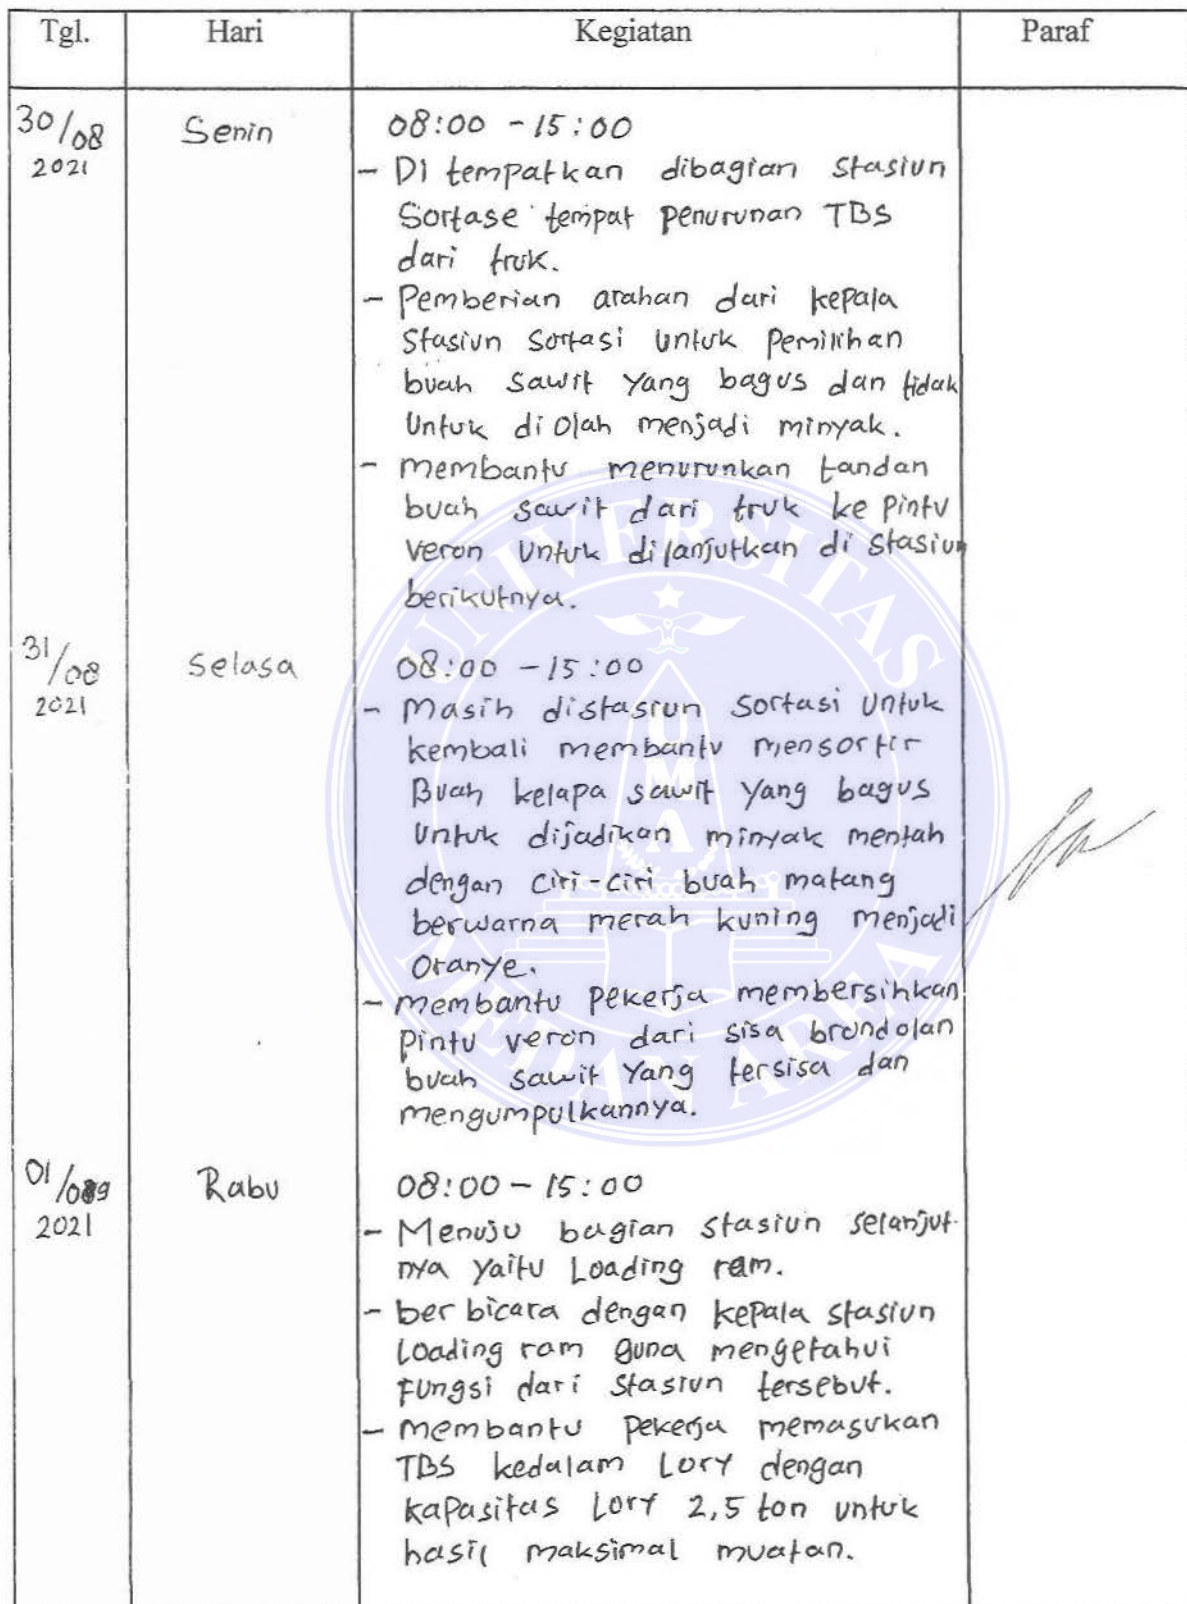 Tgl. Hari Kegiatan Paraf
30/08 Senin 08:00 - 15:00
2021
- Di tempatkan dibagian stasiun
Sortase tempat penurunan TBS
dari truk.
- Pemberian arahan dari kepala
Stasiun sortasi untuk pemilihan
buah sawit yang bagus dan tidak
Untuk di olah menjadi minyak.
- membantu menurunkan tandan
buah sawit dari truk ke pintu
veron untuk dilanjutkan di stasiun
berikutnya.
31/08 Selasa 08:00 - 15:00
2021
- Masih distasiun sortasi untuk
kembali membantu mensortir
Buah kelapa sawit yang bagus
untuk dijadikan minyak mentah
dengan ciri-ciri buah matang
berwarna merah kuning menjadi
Oranye.
- membantu pekerja membersihkan
pintu veron dari sisa brondolan
buah sawit yang tersisa dan
mengumpulkannya.
01/09 Rabu 08:00 - 15:00
2021
- Menuju bagian stasiun selanjut-
nya yaitu Loading ram.
- ber bicara dengan kepala stasiun
Loading ram guna mengetahui
Fungsi dari stasiun tersebut.
- membantu pekerja memasukan
TBS kedalam Lory dengan
kapasitas Lory 2,5 ton untuk
hasil maksimal muatan.
UNIVERSITAS
UMA
MEDAN AREA